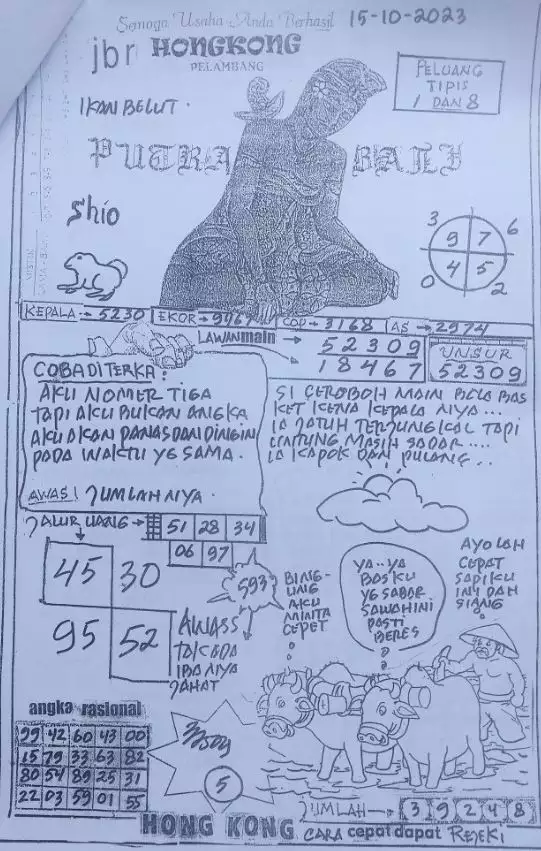 Semoga Usaha Anda Berhasil 15-10-2023
jbr HONGKONG
PELAMBANG
PELUANG
TIPIS
1 DAN 8
IKAN BELUT.
PUTRA BALI
Shio
3 6
9 7
4 5
0 2
KEPALA → 5230 EKOR → 9967 COP → 3168 AS → 2974
LAWAN main → 52309
18467
UNSUR
52309
COBA DITERKA:
AKU NOMER TIGA
TAPI AKU BUKAN ANGKA
AKU AKAN PANAS DAN DINGIN
PADA WAKTU YG SAMA.
AWAS! JUMLAH NIYA.
SI CEROBOH MAIN
KET KENA KEPALA NIYA...
IA JATUH TERJUNGKAL TAPI
UNTUNG MASIH SADAR....
IA KAPOK DAN PULANG..
JALUR UANG → 51 28 34
06 97
45 30
95 52
593
AWASS
IBA NIYA
JAHAT
BING-
UNG
AKU
MINTA
CEPET
YA..YA
BOSKU
YG SABAR
SAWAH INI
PASTI
BERES
AYO LAH
CEPAT
SAPIKU
INI DAH
SIANG
angka rasional
29 42 60 43 00
15 79 33 63 82
80 54 89 25 31
22 03 59 01 55
5
JUMLAH → 3 9 2 4 8
HONG KONG CARA cepat dapat REJEKI